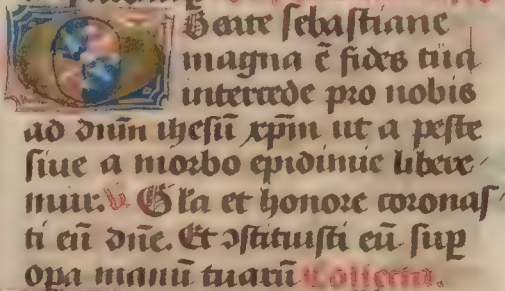 O Beate sebastiane
magna ē fides tua
intercede pro nobis
ad dnm̄ ihesū xp̄m ut a peste
siue a morbo epidimie libere
mur. V. Gl̄a et honore coronas
ti eū dn̄e. Et ↄstituisti eū sup̄
opa manū tuarū